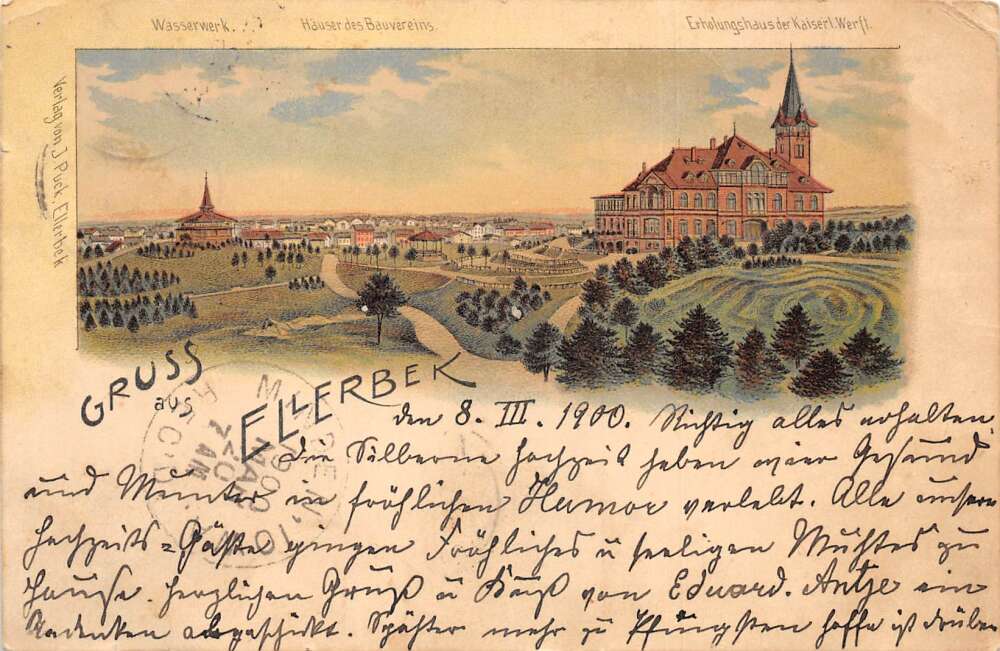 Wasserwerk. . . Häuser des Bauvereins. Erholungshaus der Kaiserl. Werft.
Verlag von J. Puck, Ellerbek
GRUSS
aus
ELLERBEK
den 8. III. 1900. Richtig alles erhalten,
Die Silberne Hochzeit haben wier Gesund
und Munter in fröhlichen Humor verlebt. Alle unsere
Hochzeits=Gäste gingen Fröhliches u seeligen Muhtes zu
Hause. Herzlichen Gruß u Kuß von Eduard. Antje ein
Andenken abgeschikt. Spähter mehr zu Pfingsten hoffe ist drüben
REC'D.
MAR
1900
7 AM